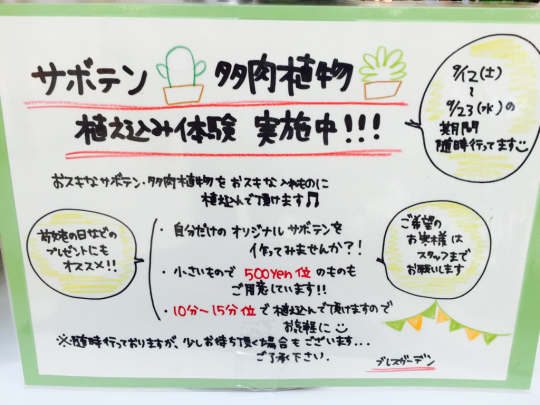 サボテン 多肉植物
植え込み体験 実施中!!!
9/12(土)
~
9/23(水)の
期間
随時行ってます
おスキなサボテン・多肉植物をおスキな入れものに
植え込んで頂けます♫
敬老の日などの
プレゼントにも
オススメ!!
・自分だけのオリジナルサボテンを
作ってみませんか?!
・小さいもので500yen位のものも
ご用意しています!!
・10分~15分位で植え込んで頂けますので
お気軽に
ご希望の
お客様は
スタッフまで
お願いします
※随時行っておりますが、少しお待ち頂く場合もございます...
ご了承下さい.
ブレスガーデン